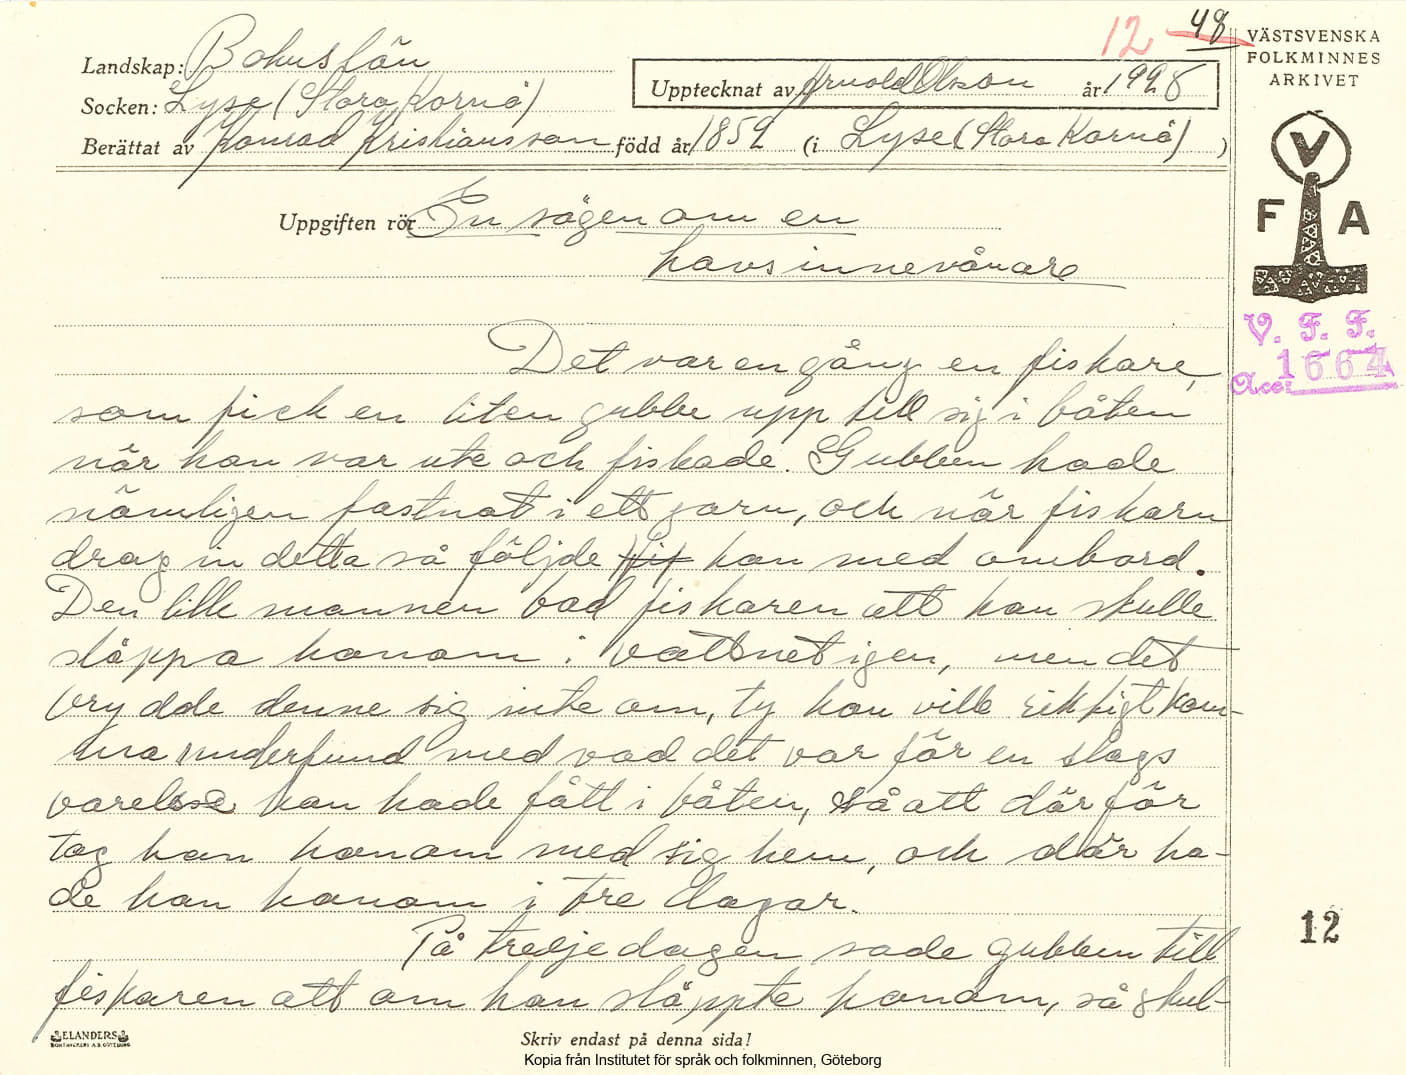 12 48
VÄSTSVENSKA
FOLKMINNES
ARKIVET
Landskap: Bohuslän
Socken: Lyse (Stora Kornö)
Upptecknat av Arnold Olsson år 1928
Berättat av Konrad Kristiansson född år 1859 (i Lyse (Stora Kornö) )
V
F A
Uppgiften rör En sägen om en
havsinnevånare
V. F. F.
Acc: 1664
Det var en gång en fiskare,
som fick en liten gubbe upp till sig i båten
när han var ute och fiskade. Gubben hade
nämligen fastnat i ett garn, och när fiskarn
drag in detta så följde han med ombord.
Den lille mannen bad fiskaren att han skulle
släppa honom i vattnet igen, men det
brydde denne sig inte om, ty han ville riktigt kom-
ma underfund med vad det var för en slags
varelse han hade fått i båten, så att därför
tog han honom med sig hem, och där ha-
de han honom i tre dagar.
På tredje dagen sade gubben till
fiskaren att om han släppte honom, så skul-
12
ELANDERS
BOKTRYCKERI A.B. GÖTEBORG
Skriv endast på denna sida!
Kopia från Institutet för språk och folkminnen, Göteborg